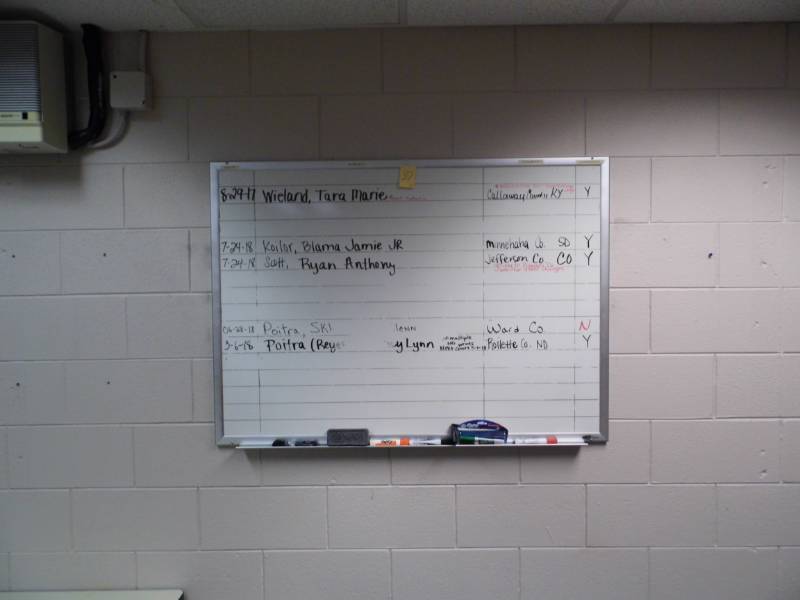 8-29-17 Wieland, Tara Marie Callaway County KY Y
7-24-18 Koilor, Blama Jamie JR Minnehaha Co. SD Y
7-24-18 Scott, Ryan Anthony Jefferson Co. CO Y
Poitra, SKI Ward Co N
3-6-18 Poitra (Rey y Lynn Rollette Co. ND Y